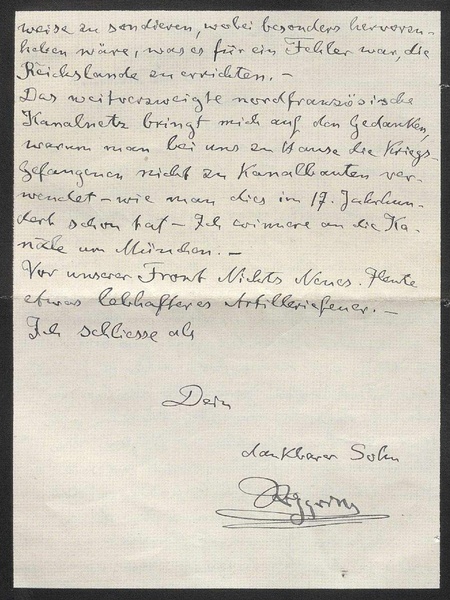 weise zu sondieren, wobei besonders hervorzu-
heben wäre, was es für ein Fehler war, die
Reichslande zu errichten. –
Das weitverzweigte nordfranzösische
Kanalnetz bringt mich auf den Gedanken,
warum man bei uns zu Hause die Kriegs-
gefangenen nicht zu Kanalbauten ver-
wendet – wie man dies im 17. Jahrhun-
dert schon tat – Ich erinnere an die Ka-
näle um München. –
Vor unserer Front Nichts Neues. Heute
etwas lebhafteres Artilleriefeuer. –
Ich schliesse als
Dein
dankbarer Sohn